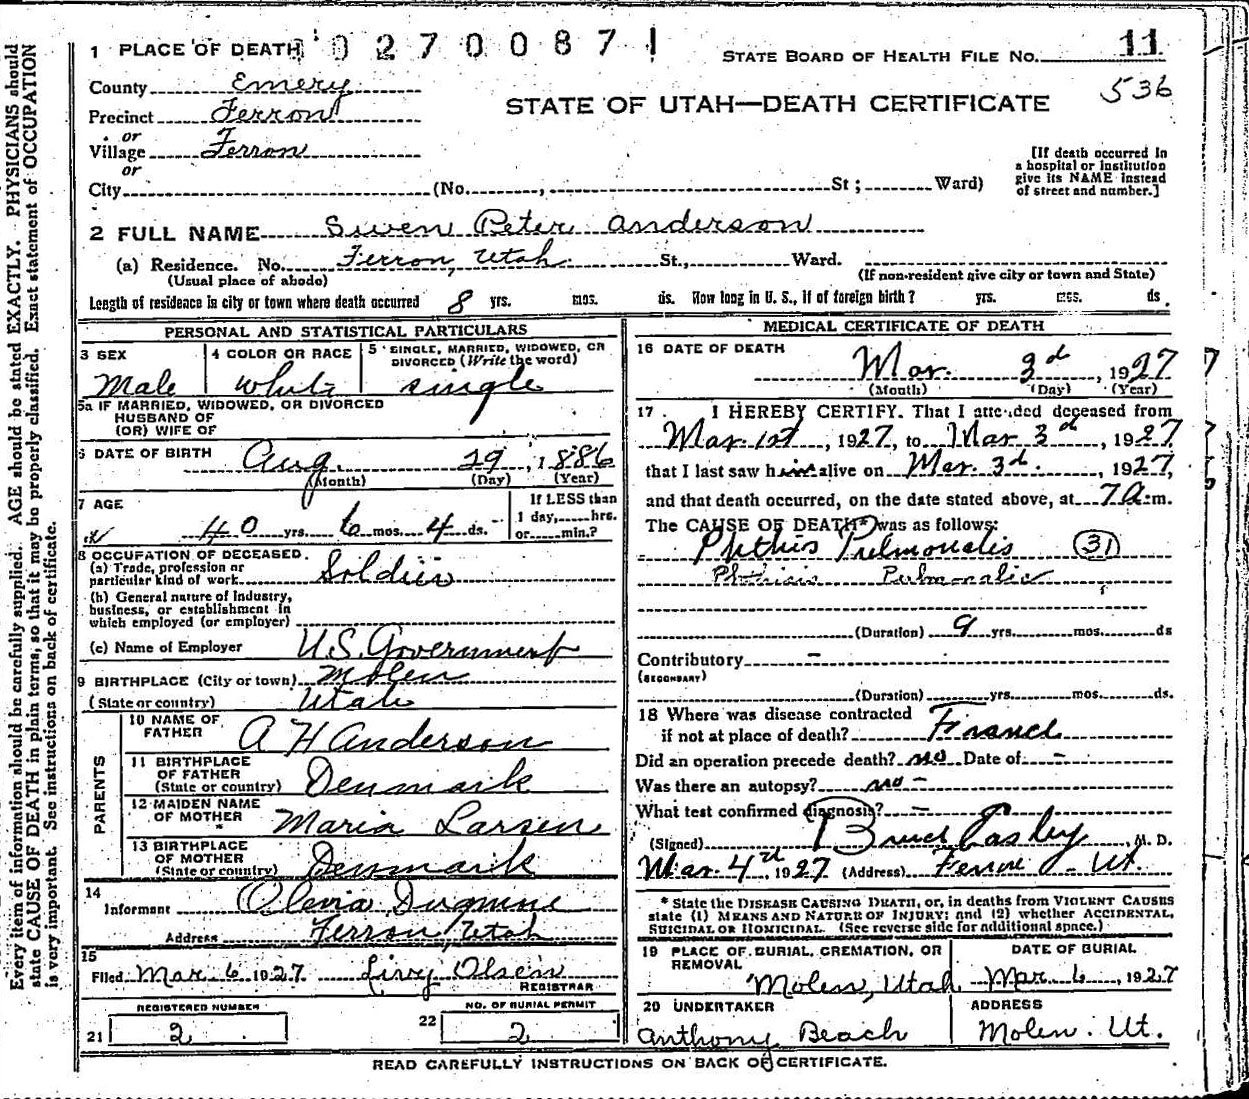 1 PLACE OF DEATH 0270087 STATE BOARD OF HEALTH FILE No. 11
County Emery 536
STATE OF UTAH—DEATH CERTIFICATE
Precinct Ferron
or
Village Ferron
or
City (No. , St; Ward)
[If death occurred in a hospital or institution give its NAME instead of street and number.]
2 FULL NAME Swen Peter Anderson
(a) Residence. No. Ferron, Utah St., Ward.
(Usual place of abode) (If non-resident give city or town and State)
Length of residence in city or town where death occurred 8 yrs. mos. ds. How long in U. S., if of foreign birth? yrs. mos. ds.
PERSONAL AND STATISTICAL PARTICULARS
3 SEX Male
4 COLOR OR RACE White
5 SINGLE, MARRIED, WIDOWED, OR DIVORCED (Write the word) single
5a IF MARRIED, WIDOWED, OR DIVORCED
HUSBAND OF
(OR) WIFE OF
6 DATE OF BIRTH Aug. 29, 1886
(Month) (Day) (Year)
7 AGE 40 yrs. 6 mos. 4 ds.
If LESS than
1 day, hrs.
or min.?
8 OCCUPATION OF DECEASED.
(a) Trade, profession or
particular kind of work Soldier
(b) General nature of industry,
business, or establishment in
which employed (or employer)
(c) Name of Employer U.S. Government
9 BIRTHPLACE (City or town) Molen
(State or country) Utah
PARENTS
10 NAME OF FATHER A H Anderson
11 BIRTHPLACE OF FATHER (State or country) Denmark
12 MAIDEN NAME OF MOTHER Maria Larsen
13 BIRTHPLACE OF MOTHER (State or country) Denmark
14
Informant Olevia
Address Ferron, Utah
15
Filed Mar 6 1927 Olsen
REGISTRAR
REGISTERED NUMBER NO. OF BURIAL PERMIT
21 2 22 2
MEDICAL CERTIFICATE OF DEATH
16 DATE OF DEATH
Mar. 3d, 1927
(Month) (Day) (Year)
17 I HEREBY CERTIFY. That I attended deceased from
Mar. 1st, 1927, to Mar 3d, 1927
that I last saw him alive on Mar. 3d., 1927,
and that death occurred, on the date stated above, at 7 a.m.
The CAUSE OF DEATH* was as follows:
Phthis Pulmonalis (31)
Phthisis Pulmonalis
(Duration) 9 yrs. mos. ds
Contributory -
(SECONDARY)
(Duration) yrs. mos. ds.
18 Where was disease contracted
if not at place of death? France
Did an operation precede death? no Date of -
Was there an autopsy? no -
What test confirmed diagnosis? -
(Signed) Bruce Easley, M. D.
Mar. 4th, 1927 (Address) Ferron - Ut.
* State the DISEASE CAUSING DEATH, or, in deaths from VIOLENT CAUSES
state (1) MEANS AND NATURE OF INJURY; and (2) whether ACCIDENTAL,
SUICIDAL OR HOMICIDAL. (See reverse side for additional space.)
19 PLACE OF BURIAL, CREMATION, OR REMOVAL Molen, Utah
DATE OF BURIAL Mar 6, 1927
20 UNDERTAKER Anthony Beach
ADDRESS Molen. Ut.
READ CAREFULLY INSTRUCTIONS ON BACK OF CERTIFICATE.
Every item of information should be carefully supplied. AGE should be stated EXACTLY. PHYSICIANS should
state CAUSE OF DEATH in plain terms, so that it may be properly classified. Exact statement of OCCUPATION
is very important. See instructions on back of certificate.